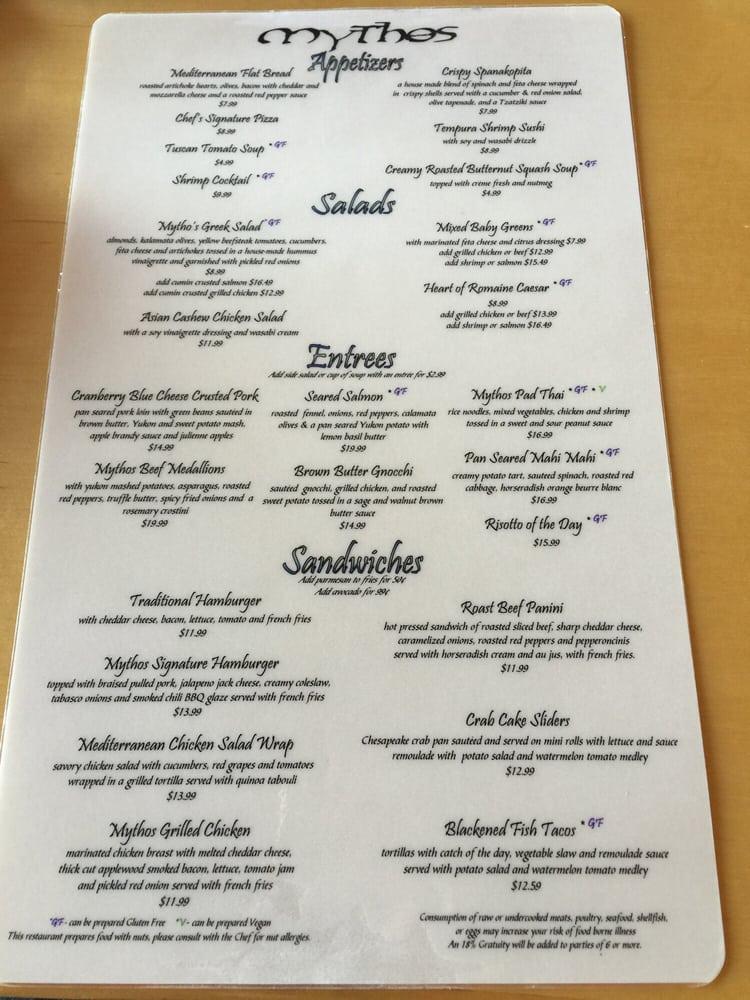 mythos
Appetizers
Mediterranean Flat Bread
roasted artichoke hearts, olives, bacon with cheddar and
mozzarella cheese and a roasted red pepper sauce
$7.99
Chef's Signature Pizza
$8.99
Tuscan Tomato Soup *GF
$4.99
Shrimp Cocktail *GF
$9.99
Crispy Spanakopita
a house made blend of spinach and feta cheese wrapped
in crispy shells served with a cucumber & red onion salad,
olive tapenade, and a Tzatziki sauce
$7.99
Tempura Shrimp Sushi
with soy and wasabi drizzle
$8.99
Creamy Roasted Butternut Squash Soup *GF
topped with creme fresh and nutmeg
$4.99
Salads
Mytho's Greek Salad *GF
almonds, kalamata olives, yellow beefsteak tomatoes, cucumbers,
feta cheese and artichokes tossed in a house-made hummus
vinaigrette and garnished with pickled red onions
$8.99
add cumin crusted salmon $16.49
add cumin crusted grilled chicken $12.99
Asian Cashew Chicken Salad
with a soy vinaigrette dressing and wasabi cream
$11.99
Mixed Baby Greens *GF
with marinated feta cheese and citrus dressing $7.99
add grilled chicken or beef $12.99
add shrimp or salmon $15.49
Heart of Romaine Caesar *GF
$8.99
add grilled chicken or beef $13.99
add shrimp or salmon $16.49
Entrees
Add side salad or cup of soup with an entree for $2.99
Cranberry Blue Cheese Crusted Pork
pan seared pork loin with green beans sautéed in
brown butter, Yukon and sweet potato mash,
apple brandy sauce and julienne apples
$14.99
Mythos Beef Medallions
with yukon mashed potatoes, asparagus, roasted
red peppers, truffle butter, spicy fried onions and a
rosemary crostini
$19.99
Seared Salmon *GF
roasted fennel, onions, red peppers, calamata
olives & a pan seared Yukon potato with
lemon basil butter
$19.99
Brown Butter Gnocchi
sautéed gnocchi, grilled chicken, and roasted
sweet potato tossed in a sage and walnut brown
butter sauce
$14.99
Mythos Pad Thai *GF *V
rice noodles, mixed vegetables, chicken and shrimp
tossed in a sweet and sour peanut sauce
$16.99
Pan Seared Mahi Mahi *GF
creamy potato tart, sautéed spinach, roasted red
cabbage, horseradish orange beurre blanc
$16.99
Risotto of the Day *GF
$15.99
Sandwiches
Add parmesan to fries for 50¢
Add avocado for 99¢
Traditional Hamburger
with cheddar cheese, bacon, lettuce, tomato and french fries
$11.99
Mythos Signature Hamburger
topped with braised pulled pork, jalapeno jack cheese, creamy coleslaw,
tabasco onions and smoked chili BBQ glaze served with french fries
$13.99
Mediterranean Chicken Salad Wrap
savory chicken salad with cucumbers, red grapes and tomatoes
wrapped in a grilled tortilla served with quinoa tabouli
$13.99
Mythos Grilled Chicken
marinated chicken breast with melted cheddar cheese,
thick cut applewood smoked bacon, lettuce, tomato jam
and pickled red onion served with french fries
$11.99
Roast Beef Panini
hot pressed sandwich of roasted sliced beef, sharp cheddar cheese,
caramelized onions, roasted red peppers and pepperoncinis
served with horseradish cream and au jus, with french fries.
$11.99
Crab Cake Sliders
Chesapeake crab pan sautéed and served on mini rolls with lettuce and sauce
remoulade with potato salad and watermelon tomato medley
$12.99
Blackened Fish Tacos *GF
tortillas with catch of the day, vegetable slaw and remoulade sauce
served with potato salad and watermelon tomato medley
$12.59
*GF- can be prepared Gluten Free *V- can be prepared Vegan
This restaurant prepares food with nuts, please consult with the Chef for nut allergies.
Consumption of raw or undercooked meats, poultry, seafood, shellfish,
or eggs may increase your risk of food borne illness
An 18% Gratuity will be added to parties of 6 or more.